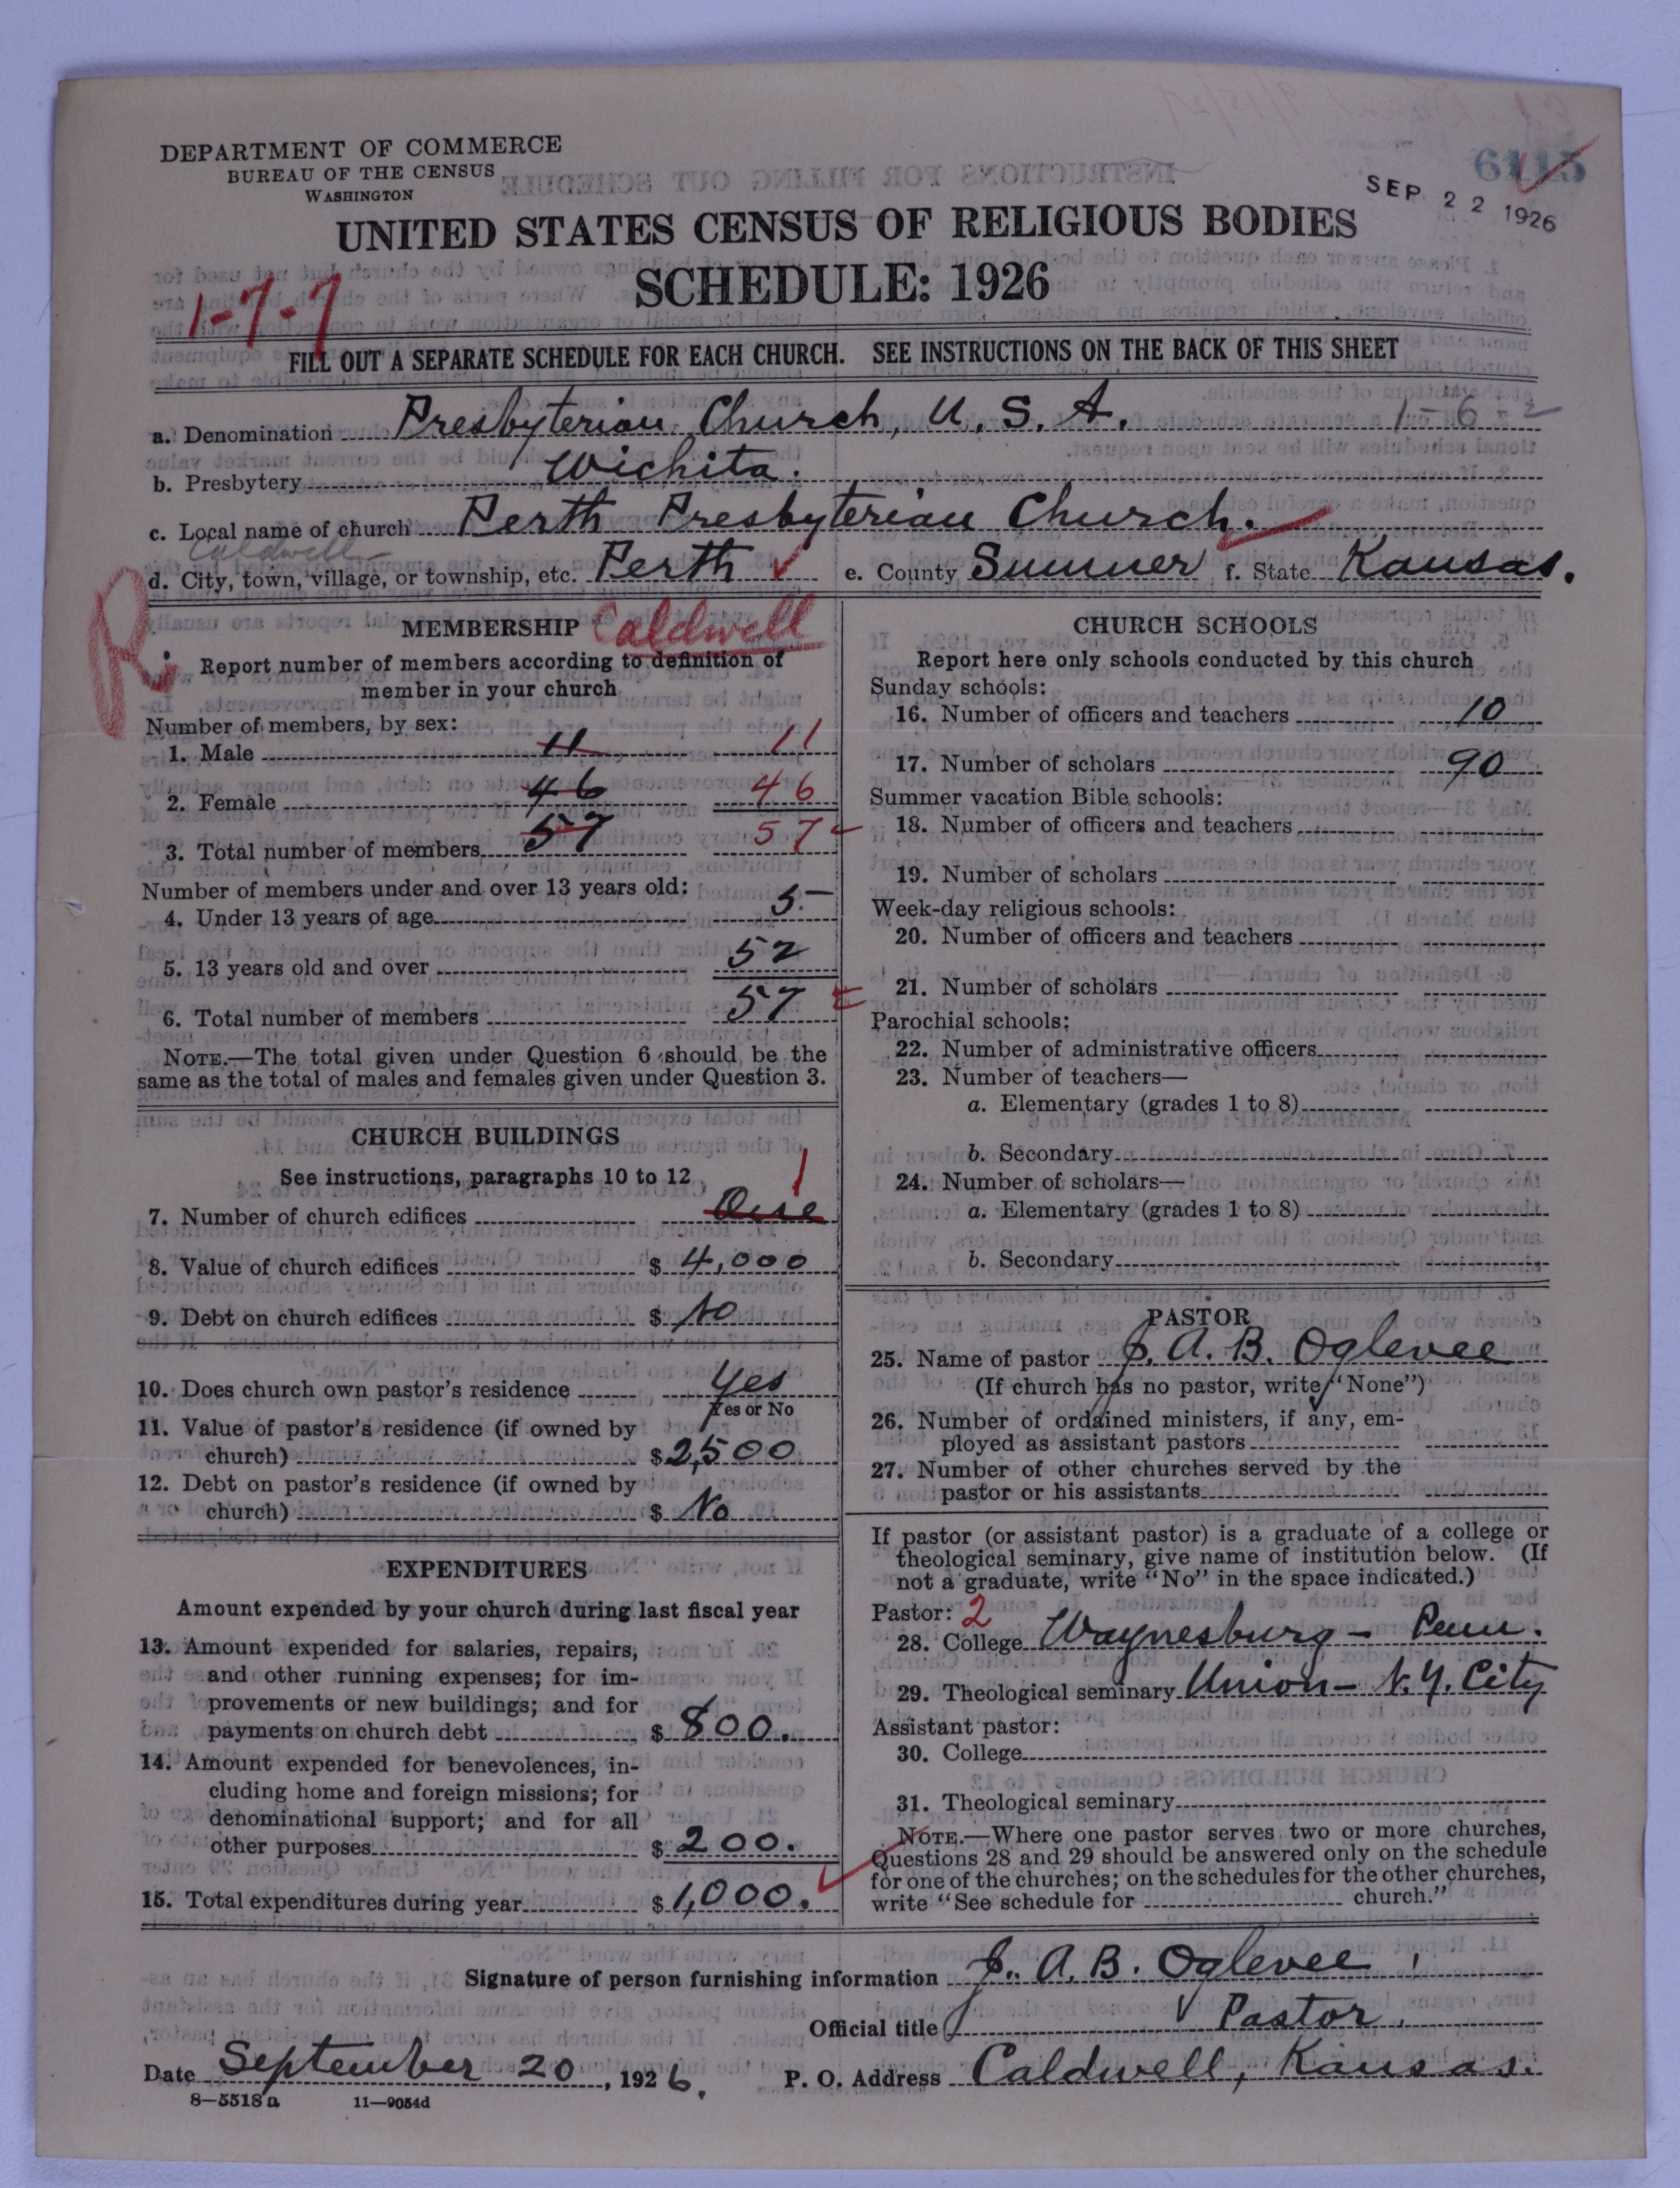 DEPARTMENT OF COMMERCE
BUREAU OF THE CENSUS
WASHINGTON
6115
SEP 22 1926
UNITED STATES CENSUS OF RELIGIOUS BODIES
SCHEDULE: 1926
1-7-7
FILL OUT A SEPARATE SCHEDULE FOR EACH CHURCH. SEE INSTRUCTIONS ON THE BACK OF THIS SHEET
a. Denomination Presbyterian Church, U. S. A. 1-6-2
b. Presbytery Wichita.
c. Local name of church Perth Presbyterian Church.
Caldwell
d. City, town, village, or township, etc. Perth e. County Sumner f. State Kansas.
R
MEMBERSHIP Caldwell
Report number of members according to definition of
member in your church
Number of members, by sex:
1. Male 11 11
2. Female 46 46
3. Total number of members 57 57
Number of members under and over 13 years old:
4. Under 13 years of age 5.-
5. 13 years old and over 52
6. Total number of members 57
NOTE.—The total given under Question 6 should be the
same as the total of males and females given under Question 3.
CHURCH BUILDINGS
See instructions, paragraphs 10 to 12
1
7. Number of church edifices One
8. Value of church edifices $ 4,000
9. Debt on church edifices $ No
10. Does church own pastor's residence Yes
Yes or No
11. Value of pastor's residence (if owned by
church) $ 2,500
12. Debt on pastor's residence (if owned by
church) $ No
EXPENDITURES
Amount expended by your church during last fiscal year
13. Amount expended for salaries, repairs,
and other running expenses; for im-
provements or new buildings; and for
payments on church debt $ 800.
14. Amount expended for benevolences, in-
cluding home and foreign missions; for
denominational support; and for all
other purposes $ 200.
15. Total expenditures during year $ 1,000.
CHURCH SCHOOLS
Report here only schools conducted by this church
Sunday schools:
16. Number of officers and teachers 10
17. Number of scholars 90
Summer vacation Bible schools:
18. Number of officers and teachers
19. Number of scholars
Week-day religious schools:
20. Number of officers and teachers
21. Number of scholars
Parochial schools:
22. Number of administrative officers
23. Number of teachers—
a. Elementary (grades 1 to 8)
b. Secondary
24. Number of scholars—
a. Elementary (grades 1 to 8)
b. Secondary
PASTOR
25. Name of pastor J. A. B. Oglevee
(If church has no pastor, write "None")
26. Number of ordained ministers, if any, em-
ployed as assistant pastors
27. Number of other churches served by the
pastor or his assistants
If pastor (or assistant pastor) is a graduate of a college or
theological seminary, give name of institution below. (If
not a graduate, write "No" in the space indicated.)
Pastor: 2
28. College Waynesburg - Penn.
29. Theological seminary Union - N.Y. City
Assistant pastor:
30. College
31. Theological seminary
NOTE.—Where one pastor serves two or more churches,
Questions 28 and 29 should be answered only on the schedule
for one of the churches; on the schedules for the other churches,
write "See schedule for church."
Signature of person furnishing information J. A. B. Oglevee
Official title Pastor.
Date September 20, 1926. P. O. Address Caldwell, Kansas.
8—5518 a 11—9054d